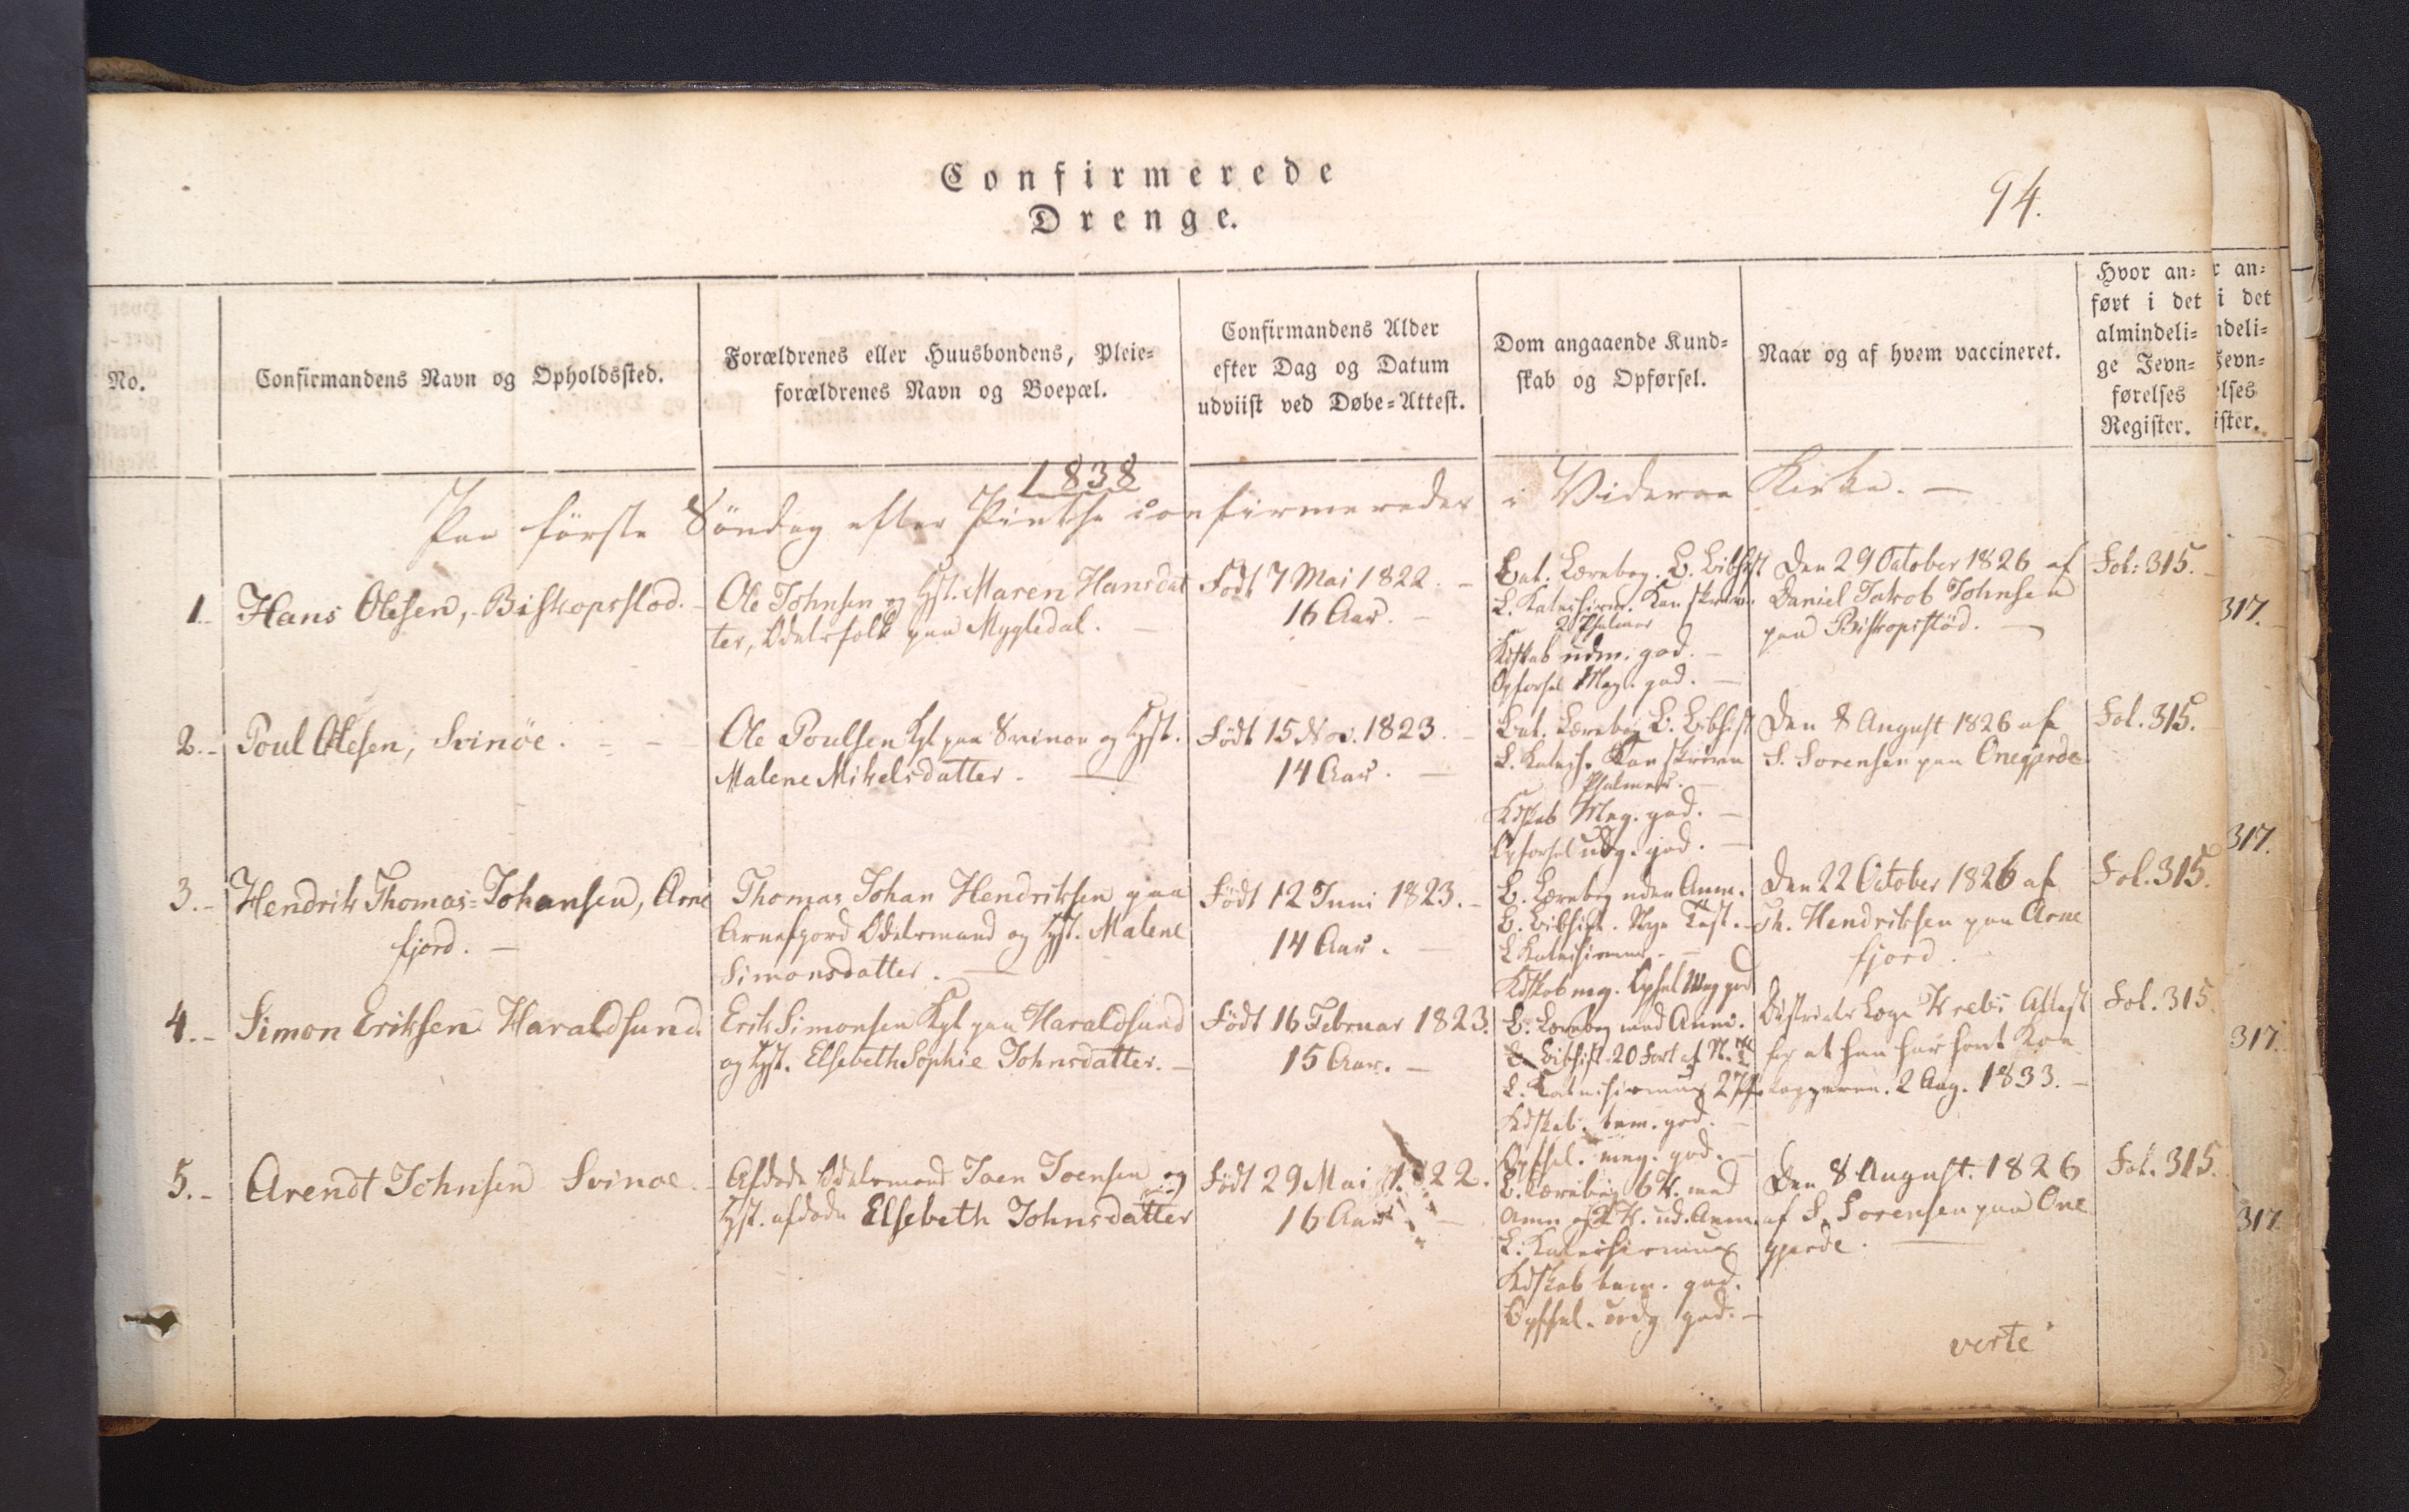 Confirmerede
Drenge.
94.
No.
Confirmandens Navn og Opholdssted.
Forældrenes eller Huusbondens, Pleie-
forældrenes Navn og Boepæl.
Confirmandens Alder
efter Dag og Datum
udviist ved Døbe-Attest.
Dom angaaende Kund-
skab og Opførsel.
Naar og af hvem vaccineret.
Hvor an-
ført i det
almindeli-
ge Jevn-
førelses
Register.
1838
Paa første Søndag efter Pintse confirmerede i Videroe Kirke. —
1. Hans Olesen, Biskopsstød. -
Ole Johnsen og Hst. Maren Hansdat
ter, Odelsfolk paa Mygledal. —
Født 7 Mai 1822. -
16 Aar. -
Bal. Lærebog. B. Bibhist
L. Katechism. Kan skrive.
2 Psalmer
Kdskab udm. god. -
Opførsel Meg. god. —
Den 29 October 1826 af
Daniel Jakob Johnsen
paa Biskopsstød. —
Fol: 315.
2. Poul Olesen, Svinöe. - -
Ole Poulsen Kgl paa Svinoe og Hst.
Malene Mikelsdatter. —
Født 15 Nov. 1823. -
14 Aar. -
Bal. Lærebog B. Bibhist
L. Katech. Kan skrive
Psalmer. -
Kdskab Meg. god. -
Opførsel udg. god. -
Den 8 August 1826 af
S. Sorensen paa Onegjerde
Fol. 315.
3. Hendrik Thomas-Johansen, Arne
fjord. —
Thomas Johan Hendriksen paa
Arnefjord Odelsmand og Hst. Malene
Simonsdatter. —
Født 12 Juni 1823. -
14 Aar. -
B. Lærebog uden Anm.
B. Bibhist. Nye Test. -
L Katechismus. -
Kdskab mg. Opfsel Meg god
Den 22 October 1826 af
Th. Hendriksen paa Arne
fjord.
Fol. 315.
4. Simon Eriksen Haraldsund.
Erik Simonsen Kgl paa Haraldsund
og Hst. Elsebeth Sophie Johnsdatter. -
Født 16 Februar 1823.
15 Aar. -
B. Lærebog med Anm.
Bibhist. 20 af N. T
L. Katechismus 2 Ps.
Kdskab. tem. god. -
Opfsel. meg. god. -
Districts Læge Krebs Attest
for at han har havt Koe
kopperne. 2 Aug. 1833. -
Fol. 315
5. Arendt Johnsen Svinoe. -
Afdøde Odelsmand Joen Joensen og
Hst. afdøde Elsebeth Johnsdatter
Født 29 Mai 1822.
16 Aar -
B. Lærebog 6 K. med
Anm og 2 K. ud. Anm.
L. Katechismus
Kdskab tem. god.
Opfsel. udg god. -
Den 8 August. 1826
af S. Sorensen paa One
gjerde. —
Fol. 315.
verte
r an-
i det
ndeli-
Jevn-
elses
ister.
317.
317.
317.
317